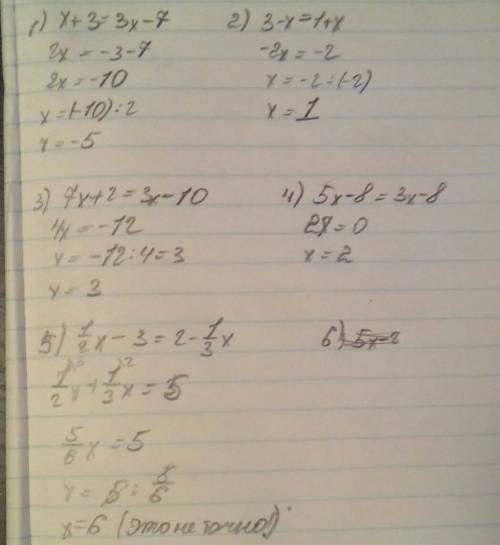 1) x+3=3x-7
2x=-3-7
2x=-10
x=(-10):2
x=-5
2) 3-x=1+x
-2x=-2
x=-2:(-2)
x=1
3) 7x+2=3x-10
4x=-12
x=-12:4=3
x=3
4) 5x-8=3x-8
2x=0
x=2
5) 1/2x-3=2-1/3x
1/2^3x+1/3^2x=5
5/6x=5
x=5:5/6
x=6 (это не точно!)
6) 5x-2